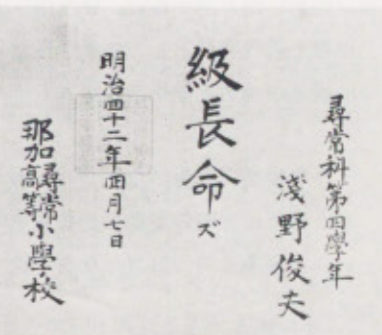 尋常科第四學年
淺野俊夫
級長命ズ
明治四十二年四月七日
那加尋常高等小學校